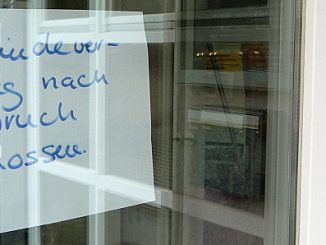 indever-
g nach
bruch
lossen.